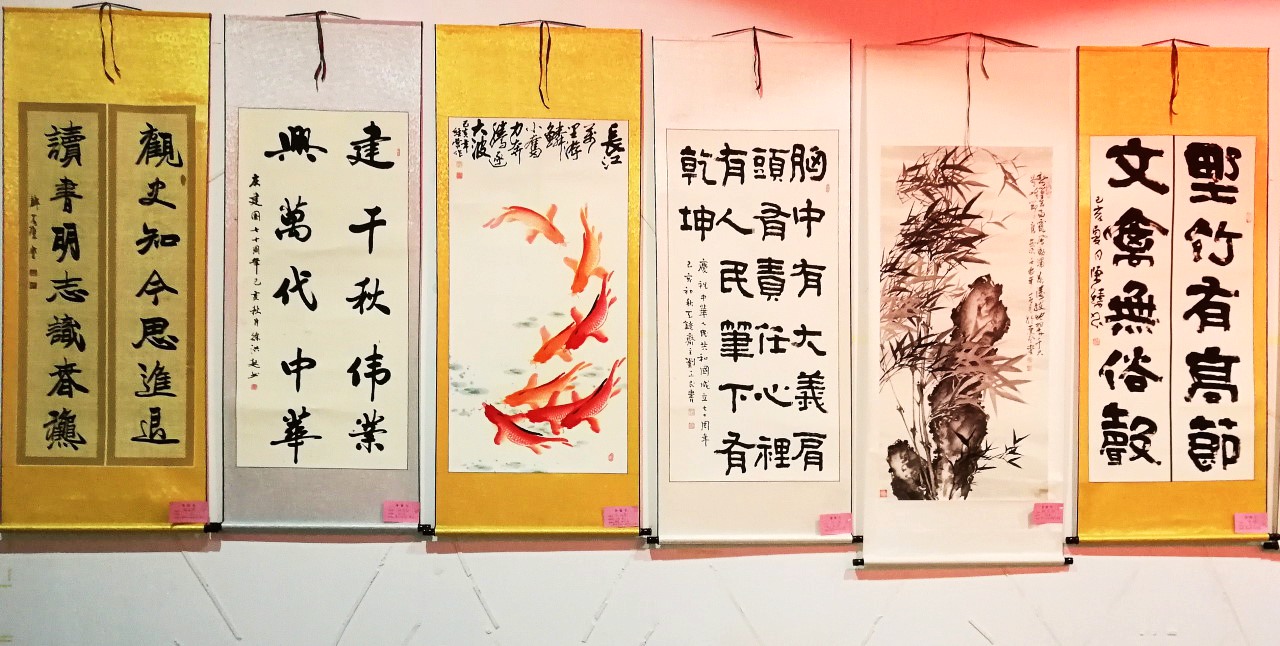 觀史知今思進退
讀書明志識春龝
建千秋伟業
興萬代中華
庆建國七十周年己亥秋月
長江
萬
里游
鱗
小奮
力奔
騰逐
大波
己亥年
胸中有大義肩
頭有責任心裡
有人民筆下有
乾坤
慶祝中華人民共和國成立七十周年
己亥初秋
野竹有高節
文禽無俗聲
己亥夏月